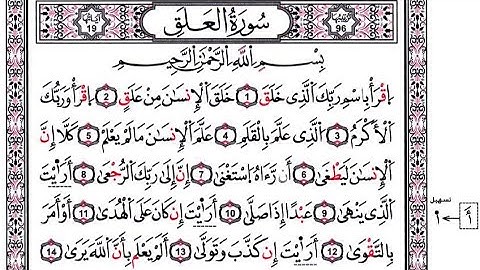 آياتها 19 سُورَةُ العَلَقِ 96
بِسْمِ اللَّهِ الرَّحْمَٰنِ الرَّحِيمِ
اقْرَأْ بِاسْمِ رَبِّكَ الَّذِى خَلَقَ 1 خَلَقَ الْإِنسَٰنَ مِنْ عَلَقٍ 2 اقْرَأْ وَرَبُّكَ
الْأَكْرَمُ 3 الَّذِى عَلَّمَ بِالْقَلَمِ 4 عَلَّمَ الْإِنسَٰنَ مَا لَمْ يَعْلَمْ 5 كَلَّا إِنَّ
الْإِنسَٰنَ لَيَطْغَىٰ 6 أَن رَّءَاهُ اسْتَغْنَىٰ 7 إِنَّ إِلَىٰ رَبِّكَ الرُّجْعَىٰ 8 أَرَأَيْتَ
الَّذِى يَنْهَىٰ 9 عَبْدًا إِذَا صَلَّىٰ 10 أَرَأَيْتَ إِن كَانَ عَلَى الْهُدَىٰ 11 أَوْ أَمَرَ
بِالتَّقْوَىٰ 12 أَرَأَيْتَ إِن كَذَّبَ وَتَوَلَّىٰ 13 أَلَمْ يَعْلَم بِأَنَّ اللَّهَ يَرَىٰ 14
تسهيل